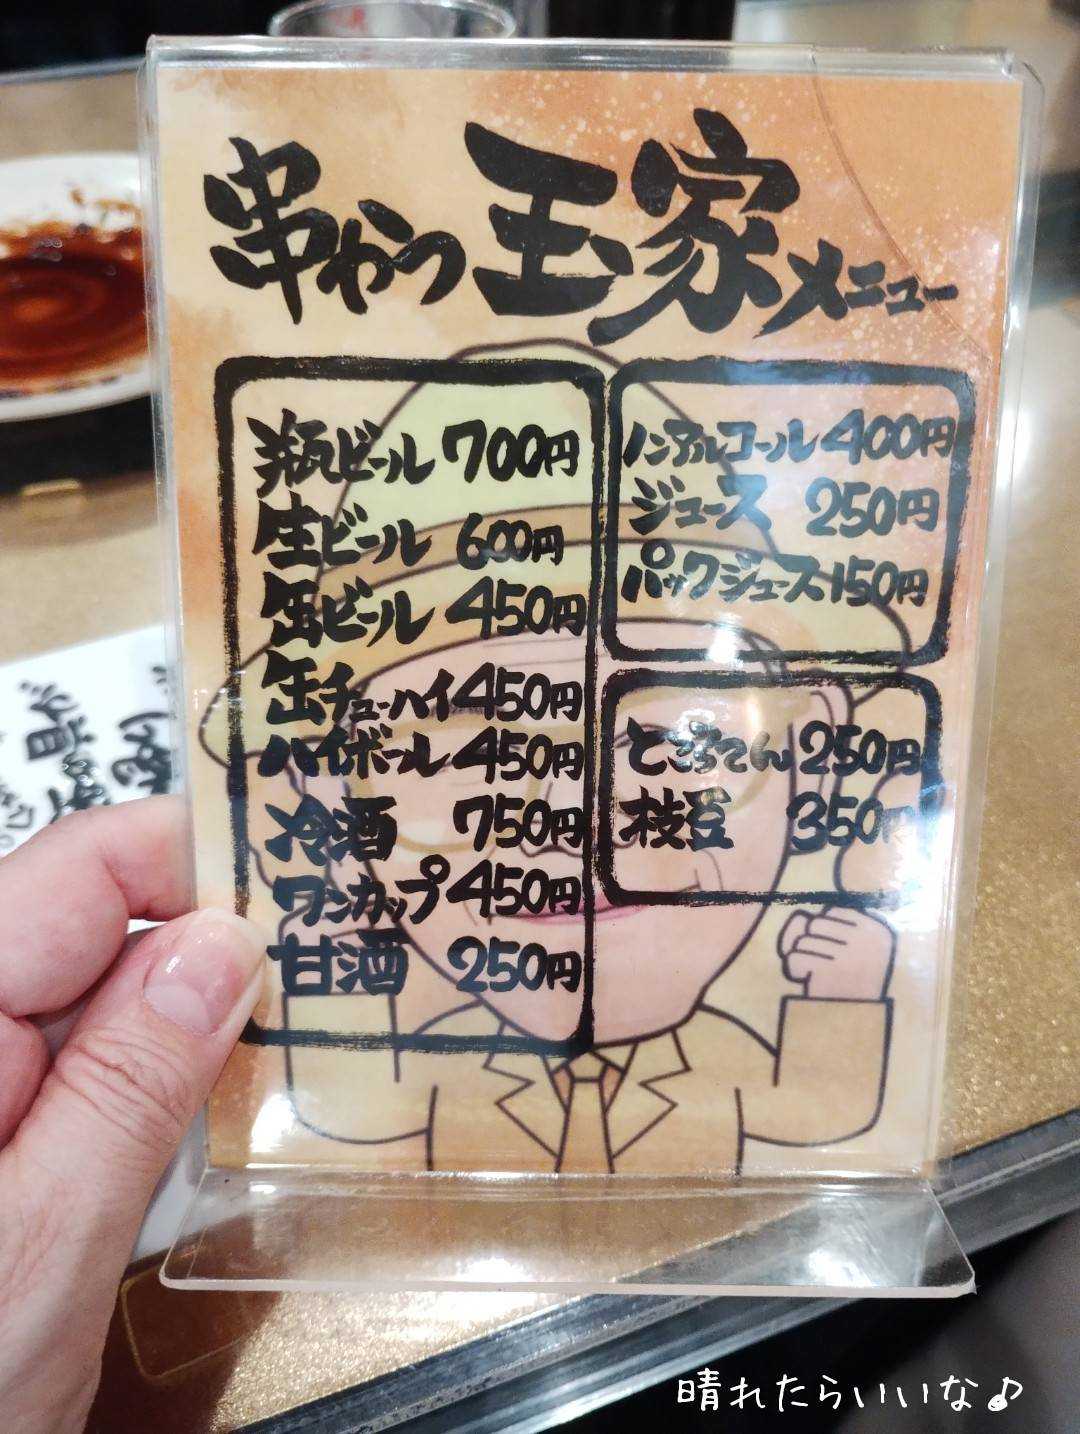 串かつ玉家メニュー
瓶ビール 700円
生ビール 600円
缶ビール 450円
缶チューハイ 450円
ハイボール 450円
冷酒 750円
ワンカップ 450円
甘酒 250円
ノンアルコール 400円
ジュース 250円
パックジュース 150円
ところてん 250円
枝豆 350円
晴れたらいいな♪